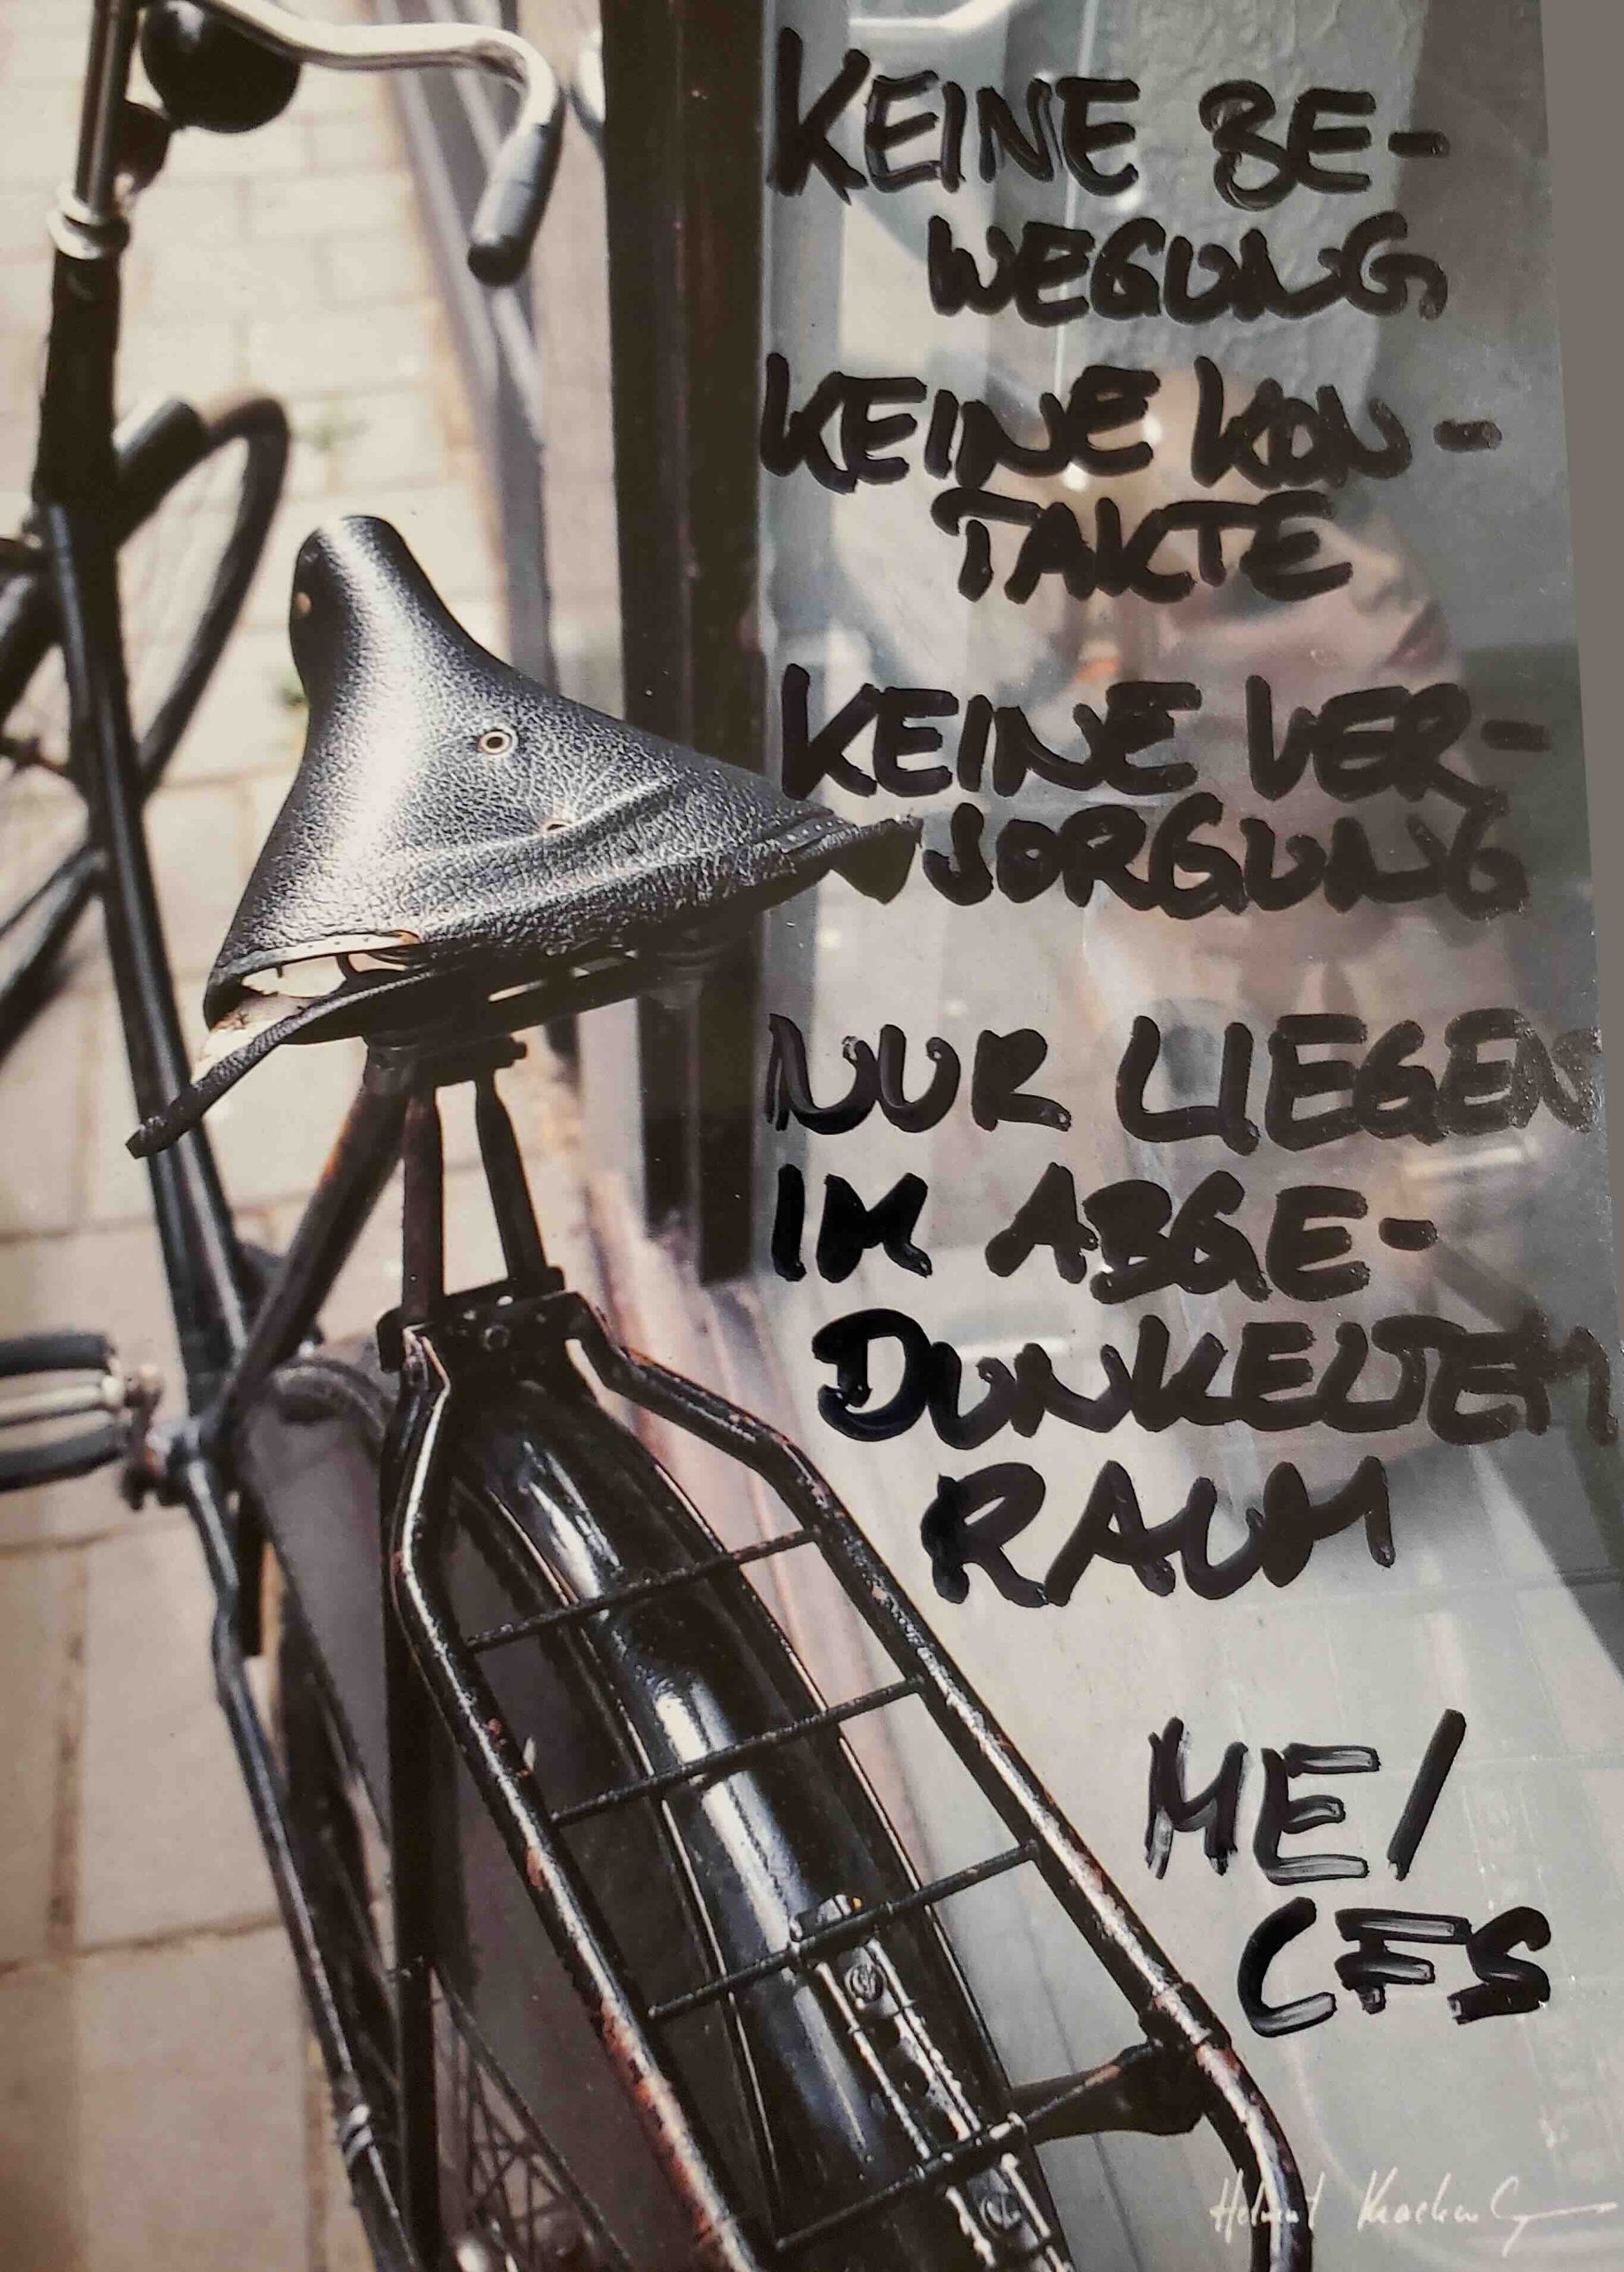 KEINE BE-
WEGUNG
KEINE KON-
TAKTE
KEINE VER-
SORGUNG
NUR LIEGEN
IM ABGE-
DUNKELTEM
RAUM
ME/
CFS
Helmut